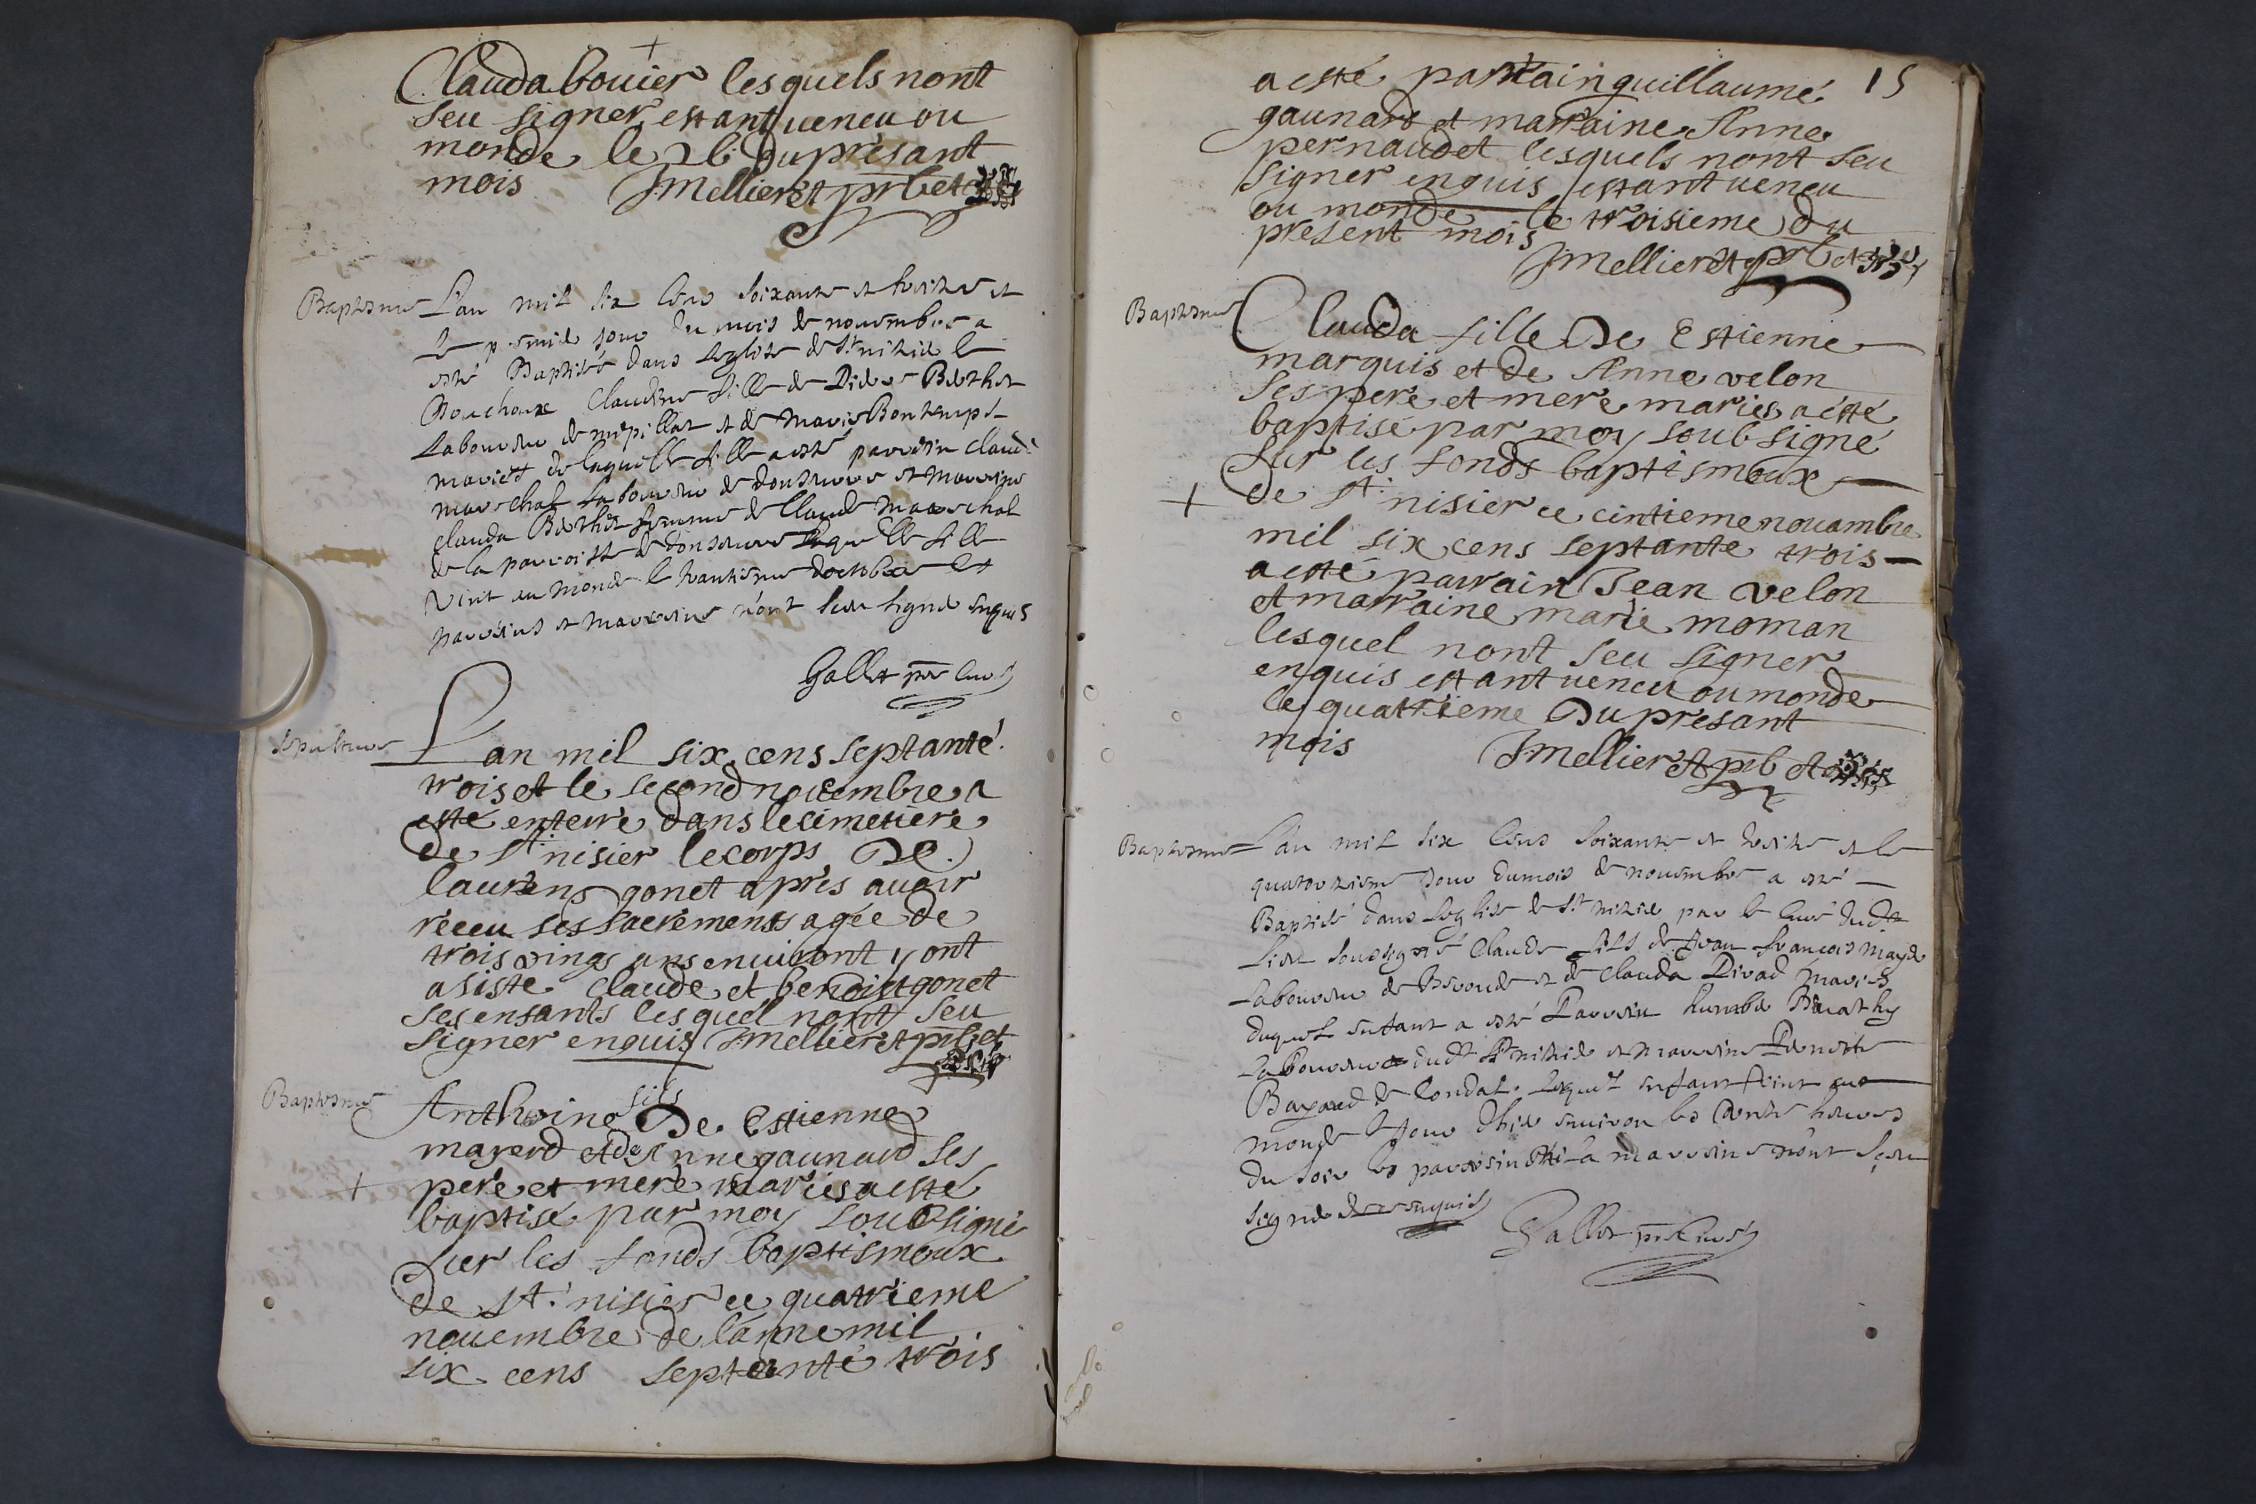 Clauda bouier lesquels nont
seu signer estant veneu ou
monde le 26 du présant
mois JMellieret prb et
Baptesme L'an mil six cens soixante et treitze et
le premier jour du mois de nouembre a
esté Baptisée dans leglise de St nizier le
Bouchoux Claudine fille de Didier Berthet
Laboureur de mépillat et de Marie Bontemps
mariés de laquelle fille a esté parrein claude
mareschal laboureur de donseure et Marreine
clauda Berthet femme de Claude Mareschal
de la parroisse de donseure Laquelle fille
vint au monde le trantiesme doctobre les
parreins et Marreine n'ont sceu signer enquis
Gallet pre Curé
Sepulture Lan mil six cens septanté
trois et le second nouembre a
esté enterré dans le cimetiere
de St nisier le corps De
laurens gonet apres auoir
réceu ses sacrements agée de
trois vings ans enuiront y ont
asiste claude et benoist gonet
ses enfants lesquel nont seu
signer enquis JMellieret prb et
Baptesme Anthoine fils De Estienne
mayerd et de Anne gaunard ses
pere et mere mariés a esté
baptisé par moy soubsigné
sur les fonds baptismaux
de St nisier ce quatrieme
nouembre de lanne mil
six cens septante trois
15
a esté parrain guillaume
gaunard et marraine Anne
pernaudet lesquels nont seu
signer enquis estant veneu
ou monde le troisieme du
présent mois
JMellieret prb et
Baptesme Clauda fille De Estienne
marquis et de Anne velon
ses pere et mere mariés a ésté
baptisé par moy soubsigné
sur les fonds baptismaux
de St nisier ce cintieme nouambre
mil six cens septante trois
a esté parrain Jean velon
et marraine marie moman
lesquel nont seu signer
enquis estant veneu ou monde
le quatrieme Du présant
mois JMellieret prb et
Baptesme L'an mil six cens soixante et treitze et le
quatorziesme jour du mois de nouembre a esté
Baptisé dans leglise de St nizier par le Curé dudt
Lieu soussigné Claude fils de Jean francois Mayer
Laboureur de et de Clauda Divad Mariés
duquel enfant a esté Parrein humber
Laboureur dudt St nizier et marreine Pernette
Bayard de Condal. lequel enfant vint au
monde le jour dhier enuiron les heures
du soir le parrein et la marreine n'ont sceu
signer de ce enquis
Gallet pre Curé